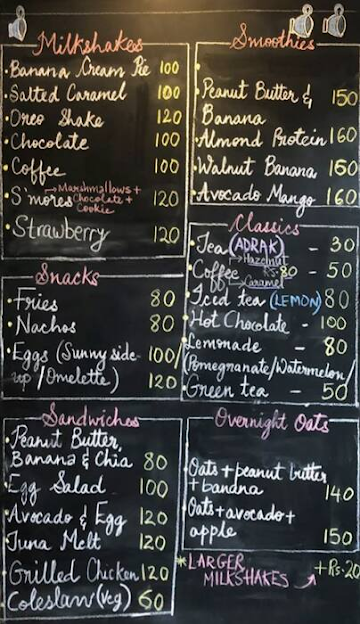 Milkshakes
Banana Cream Pie 100
Salted Caramel 100
Oreo Shake 120
Chocolate 100
Coffee 100
S'mores → Marshmallows +
Chocolate +
Cookie 120
Strawberry 120
Snacks
Fries 80
Nachos 80
Eggs (Sunny side- 100/
up / Omelette) 120
Sandwiches
Peanut Butter
Banana & Chia 80
Egg Salad 100
Avocado & Egg 120
Tuna Melt 120
Grilled Chicken 120
Coleslaw (veg) 60
Smoothies
Peanut Butter & 150
Banana
Almond Protein 160
Walnut Banana 160
Avocado Mango 160
Classics
Tea (ADRAK) - 30
Hazelnut
Coffee Rs-80 - 50
Caramel
Iced tea (LEMON) 80
Hot Chocolate - 100
Lemonade - 80
(Pomegranate/Watermelon/
Green tea - 50
Overnight Oats
Oats + peanut butter
+ banana 140
Oats + avocado +
apple 150
*LARGER
MILKSHAKES → +Rs.20